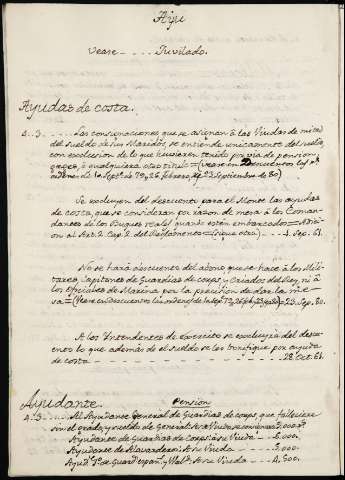 Ayu
Vease - - - - Juvilado.
Ayudas de costa.
4..3. - - - - - Las consignaciones que se asignan à las Viudas de mitad
del sueldo de sus Maridos, se entiende unicamente del sueldo,
con exclusion de lo que huviesen tenido por via de pension,
gages, ò qualquiera otro titulo = (vease en Descuentos las rs.
ordenes de 1º Sepre. de 79, 26 febrero, y 23 Septiembre de 80)
Se excluyen del descuento para el Monte las ayudas
de costa, que se consideran por razon de mesa à los Coman-
dantes de los Buques reales quando estèn embarcados = Adici-
on al Art. 2. Cap. 2. del Reglamento = - - 4. Sep. 61.
No se harà descuento del abono que se hace à los Mili-
tares, Capitanes de Guardias de corps, y Criados del Rey, ni à
los Oficiales de Marina por la precision de dar la me-
sa = (Vease en Descuentos las ordens. de 1º Sep. 79, 26 feb. 80) = 23. Sep. 80.
A los Yntendentes de Exercito se excluyga del descu-
ento lo que ademas de el sueldo se les bonifique por ayuda
de costa - - - - - - - - - 28. Oct. 61.
Ayudante. Pension
4..3. - - - Al Ayudante General de Guardias de corps, que falleciere
sin el grado y sueldo de General: à su Viuda
Ayudante de Guardias de Corps: à su Viuda - 6.000.
Ayudante de Alavarderos: A su Viuda - - - 5.000.
Ayud. de Guards. españ. y Wals. A su Viuda - - 4.500.